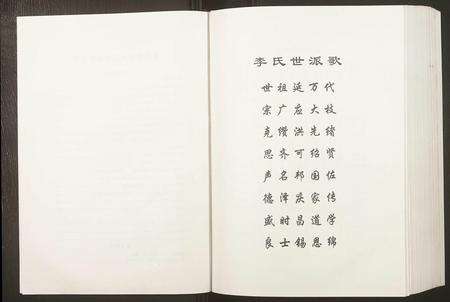 李氏世派歌
世祖延万代
宗广应大枝
克缵洪先绪
思齐可绍贤
声名邦国佐
德泽庆家传
盛时昌道学
良士锡恩绵